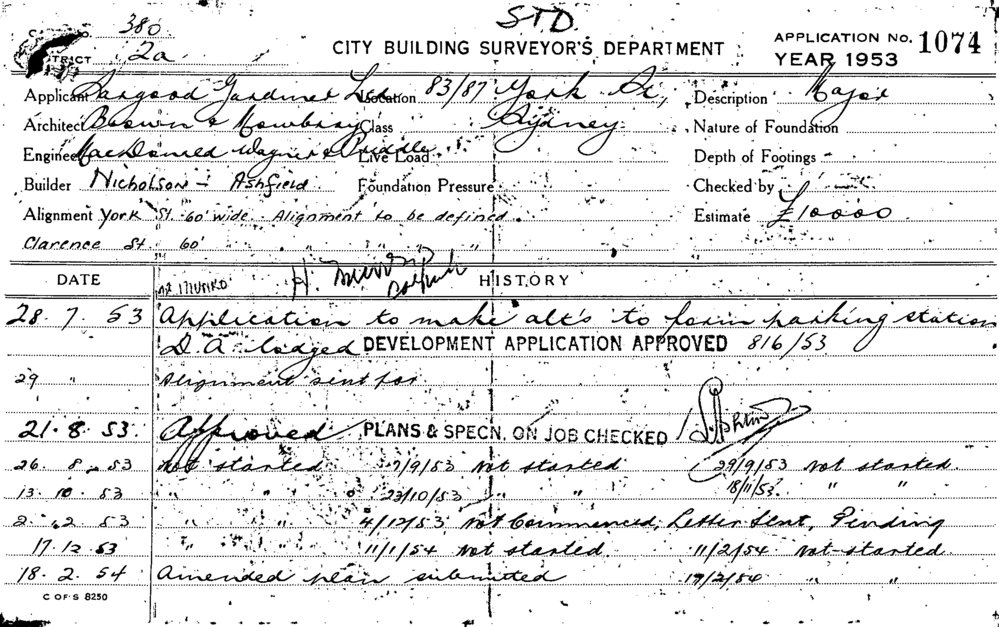 STD.
380
CITY BUILDING SURVEYOR'S DEPARTMENT
APPLICATION No. 1074
TRICT 2a
YEAR 1953
Applicant Sargood Gardiner Ltd Location 83/87 York St, Description Major
Architect Brown & Mowbray Class Sydney Nature of Foundation
Engineer MacDonald Wagner & Priddle Live Load Depth of Footings
Builder Nicholson - Ashfield Foundation Pressure Checked by
Alignment York St. 60' wide. Alignment to be defined. Estimate £10000
Clarence St 60' " " " "
DATE HISTORY
28. 7. 53 Application to make alt's to form parking station
D.A. lodged DEVELOPMENT APPLICATION APPROVED 816/53
29 " Alignment sent for
21. 8. 53. Approved PLANS & SPECN. ON JOB CHECKED
26. 8. 53 Not started 7/9/53 Not started 29/9/53 Not started.
13. 10. 53 " " 23/10/53 " " 18/11/53. " "
2. 12 53 " " 4/12/53 Not Commenced, Letter Sent, Pending
17. 12. 53 11/1/54 Not started. 11/2/54 Not started.
18. 2. 54 Amended plan submitted 19/2/54 " "
C OF S 8250